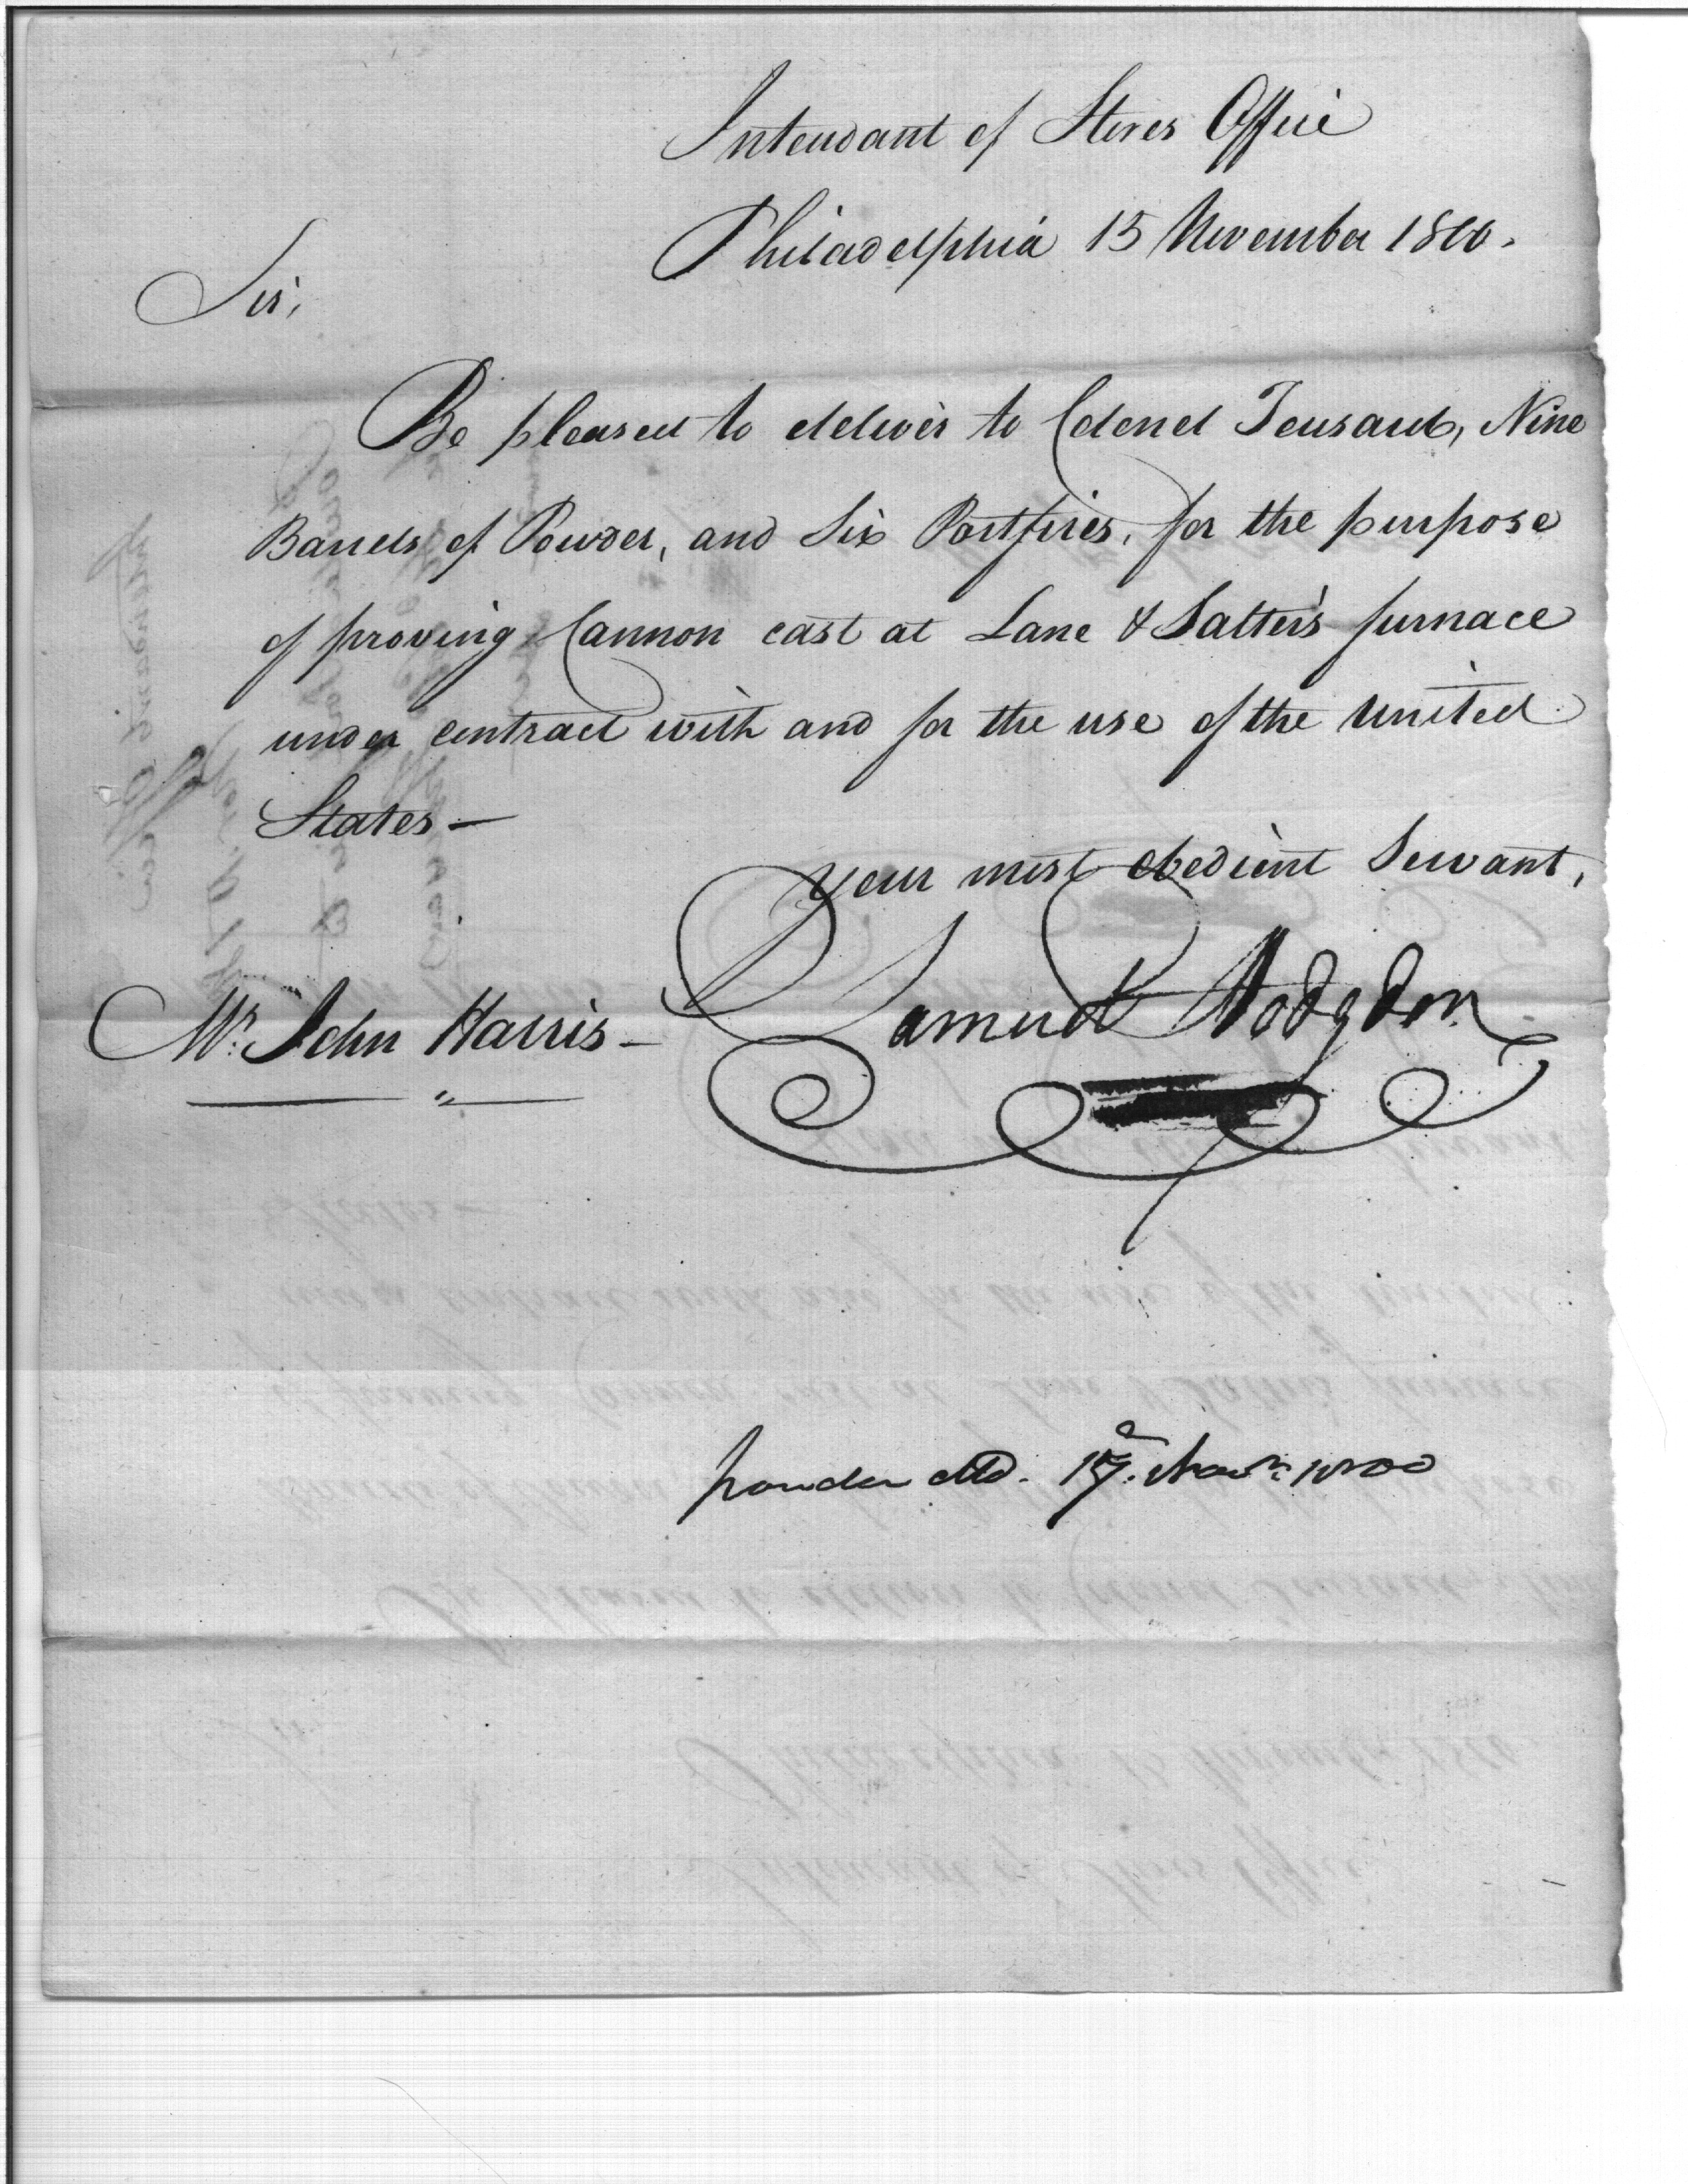 Intendant of Stores Office
Philadelphia 15 November 1800.
Sir,
Be pleased to deliver to Colonel Tousard, Nine
Barrels of Powder, and Six Portfires, for the purpose
of proving Cannon cast at Lane & Salter's furnace
under contract with and for the use of the United
States —
your most obedient Servant,
Samuel Hodgdon
Mr. John Harris —
powder dld. 17. Novr. 1800